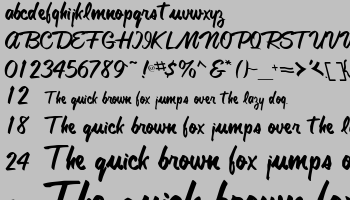 abcdefghijklmnopqrstuvwxyz
ABCDEFGHIJKLMNOPQRSTUVW
0123456789~!@#$%^&*()-_+=><'[]{
12 The quick brown fox jumps over the lazy dog.
18 The quick brown fox jumps over the l
24 The quick brown fox jumps o
The quick brown fox